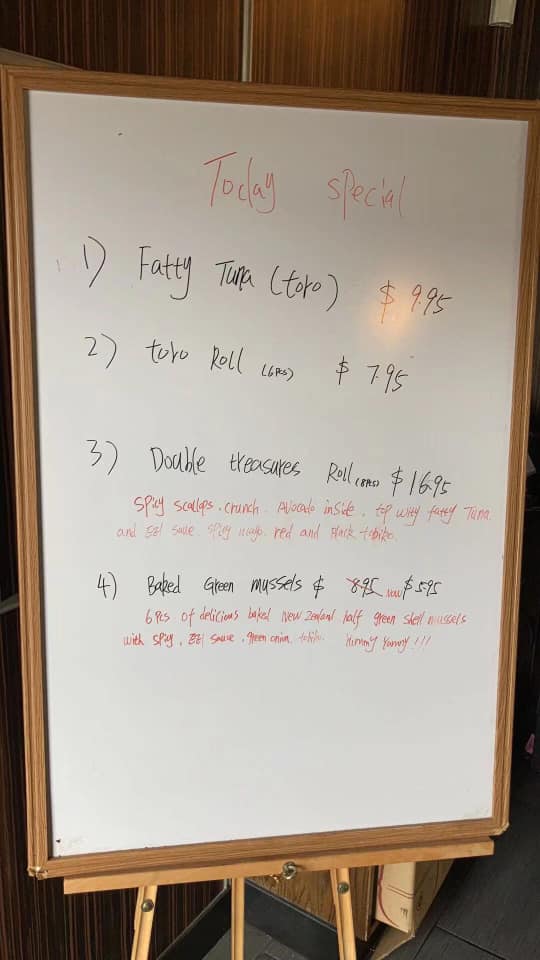 Today special
1) Fatty Tuna (toro) $ 9.95
2) toro Roll (6PCS) $ 7.95
3) Double treasures Roll (8PCS) $ 16.95
Spicy scallops . crunch . Avocado inside . top with fatty Tuna
and EEl sauce spicy mayo . red and black tobiko.
4) Baked Green mussels $ 8.95 now $ 5.95
6 PCS of delicious baked New Zealand half green shell mussels
with spicy . EEl sauce . green onion . tobiko. Yummy Yummy !!!